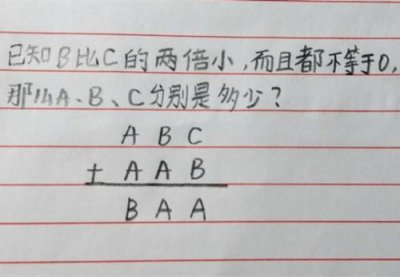 已知B比C的两倍小,而且都不等于0,
那么A、B、C分别是多少?
A B C
+ A A B
B A A